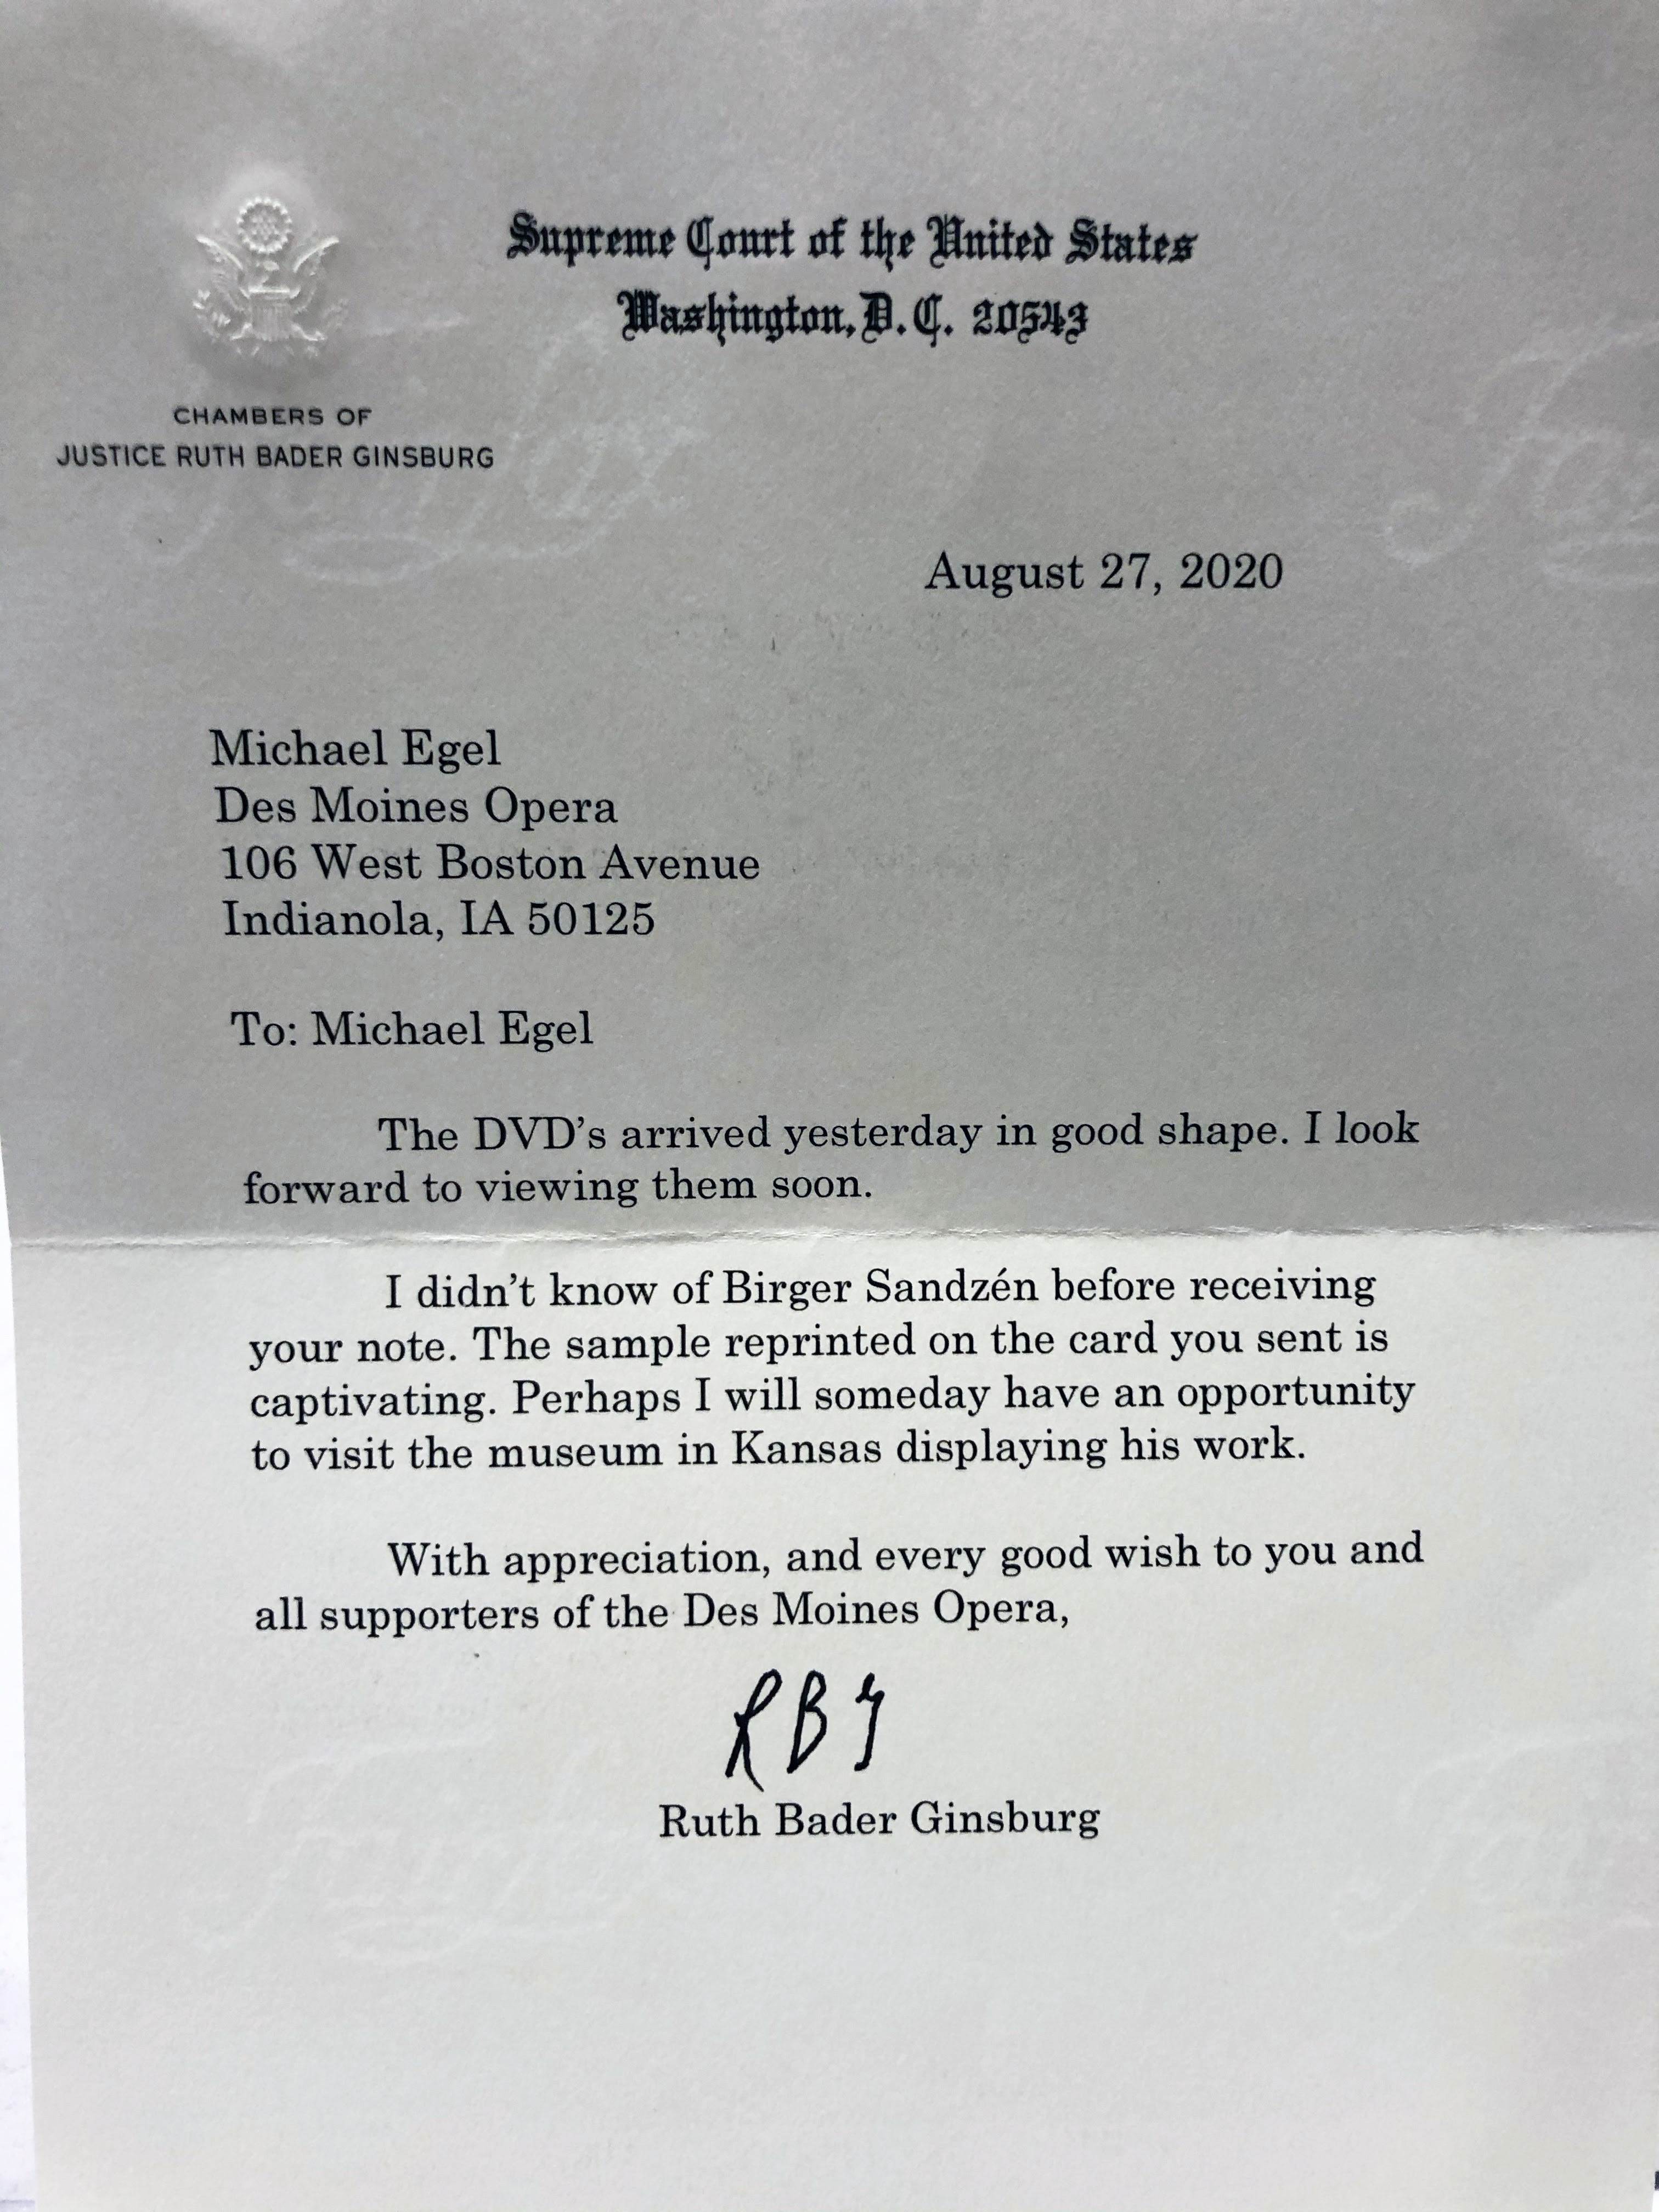 Supreme Court of the United States
Washington, D.C. 20543
CHAMBERS OF
JUSTICE RUTH BADER GINSBURG
August 27, 2020
Michael Egel
Des Moines Opera
106 West Boston Avenue
Indianola, IA 50125
To: Michael Egel
The DVD’s arrived yesterday in good shape. I look
forward to viewing them soon.
I didn’t know of Birger Sandzén before receiving
your note. The sample reprinted on the card you sent is
captivating. Perhaps I will someday have an opportunity
to visit the museum in Kansas displaying his work.
With appreciation, and every good wish to you and
all supporters of the Des Moines Opera,
RBG
Ruth Bader Ginsburg